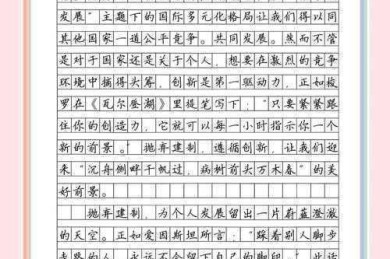 发展”主题下的国际多元化格局让我们得以同
其他国家一道公平竞争。共同发展。然而不管
是对于国家还是关于个人，想要在激烈的竞争
环境中摘得头筹，创新是第一驱动力，正如梭
罗在《瓦尔登湖》里提笔写下：“只要紧紧跟
住你的创造力，它就可以每一小时指示你一个
新的前景。”抛弃建制，遵循创新，让我们迎
来“沉舟侧畔千帆过，病树前头万木春”的美
好前景。
抛弃建制，为个人发展留出一片蔚蓝澄澈
的天空。正如爱因斯坦所言：“踩着别人脚步
走路的人，永远不会留下自己的脚印。”此话